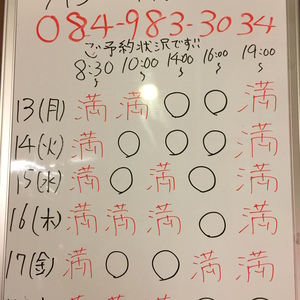 084-983-3034
ご予約状況です!!
8:30〜 10:00〜 14:00〜 16:00〜 19:00〜
13(月) 満 満 ○ ○ 満
14(火) 満 ○ ○ ○ 満
15(水) 満 ○ 満 ○ 満
16(木) 満 満 満 ○ 満
17(金) 満 ○ ○ 満 満